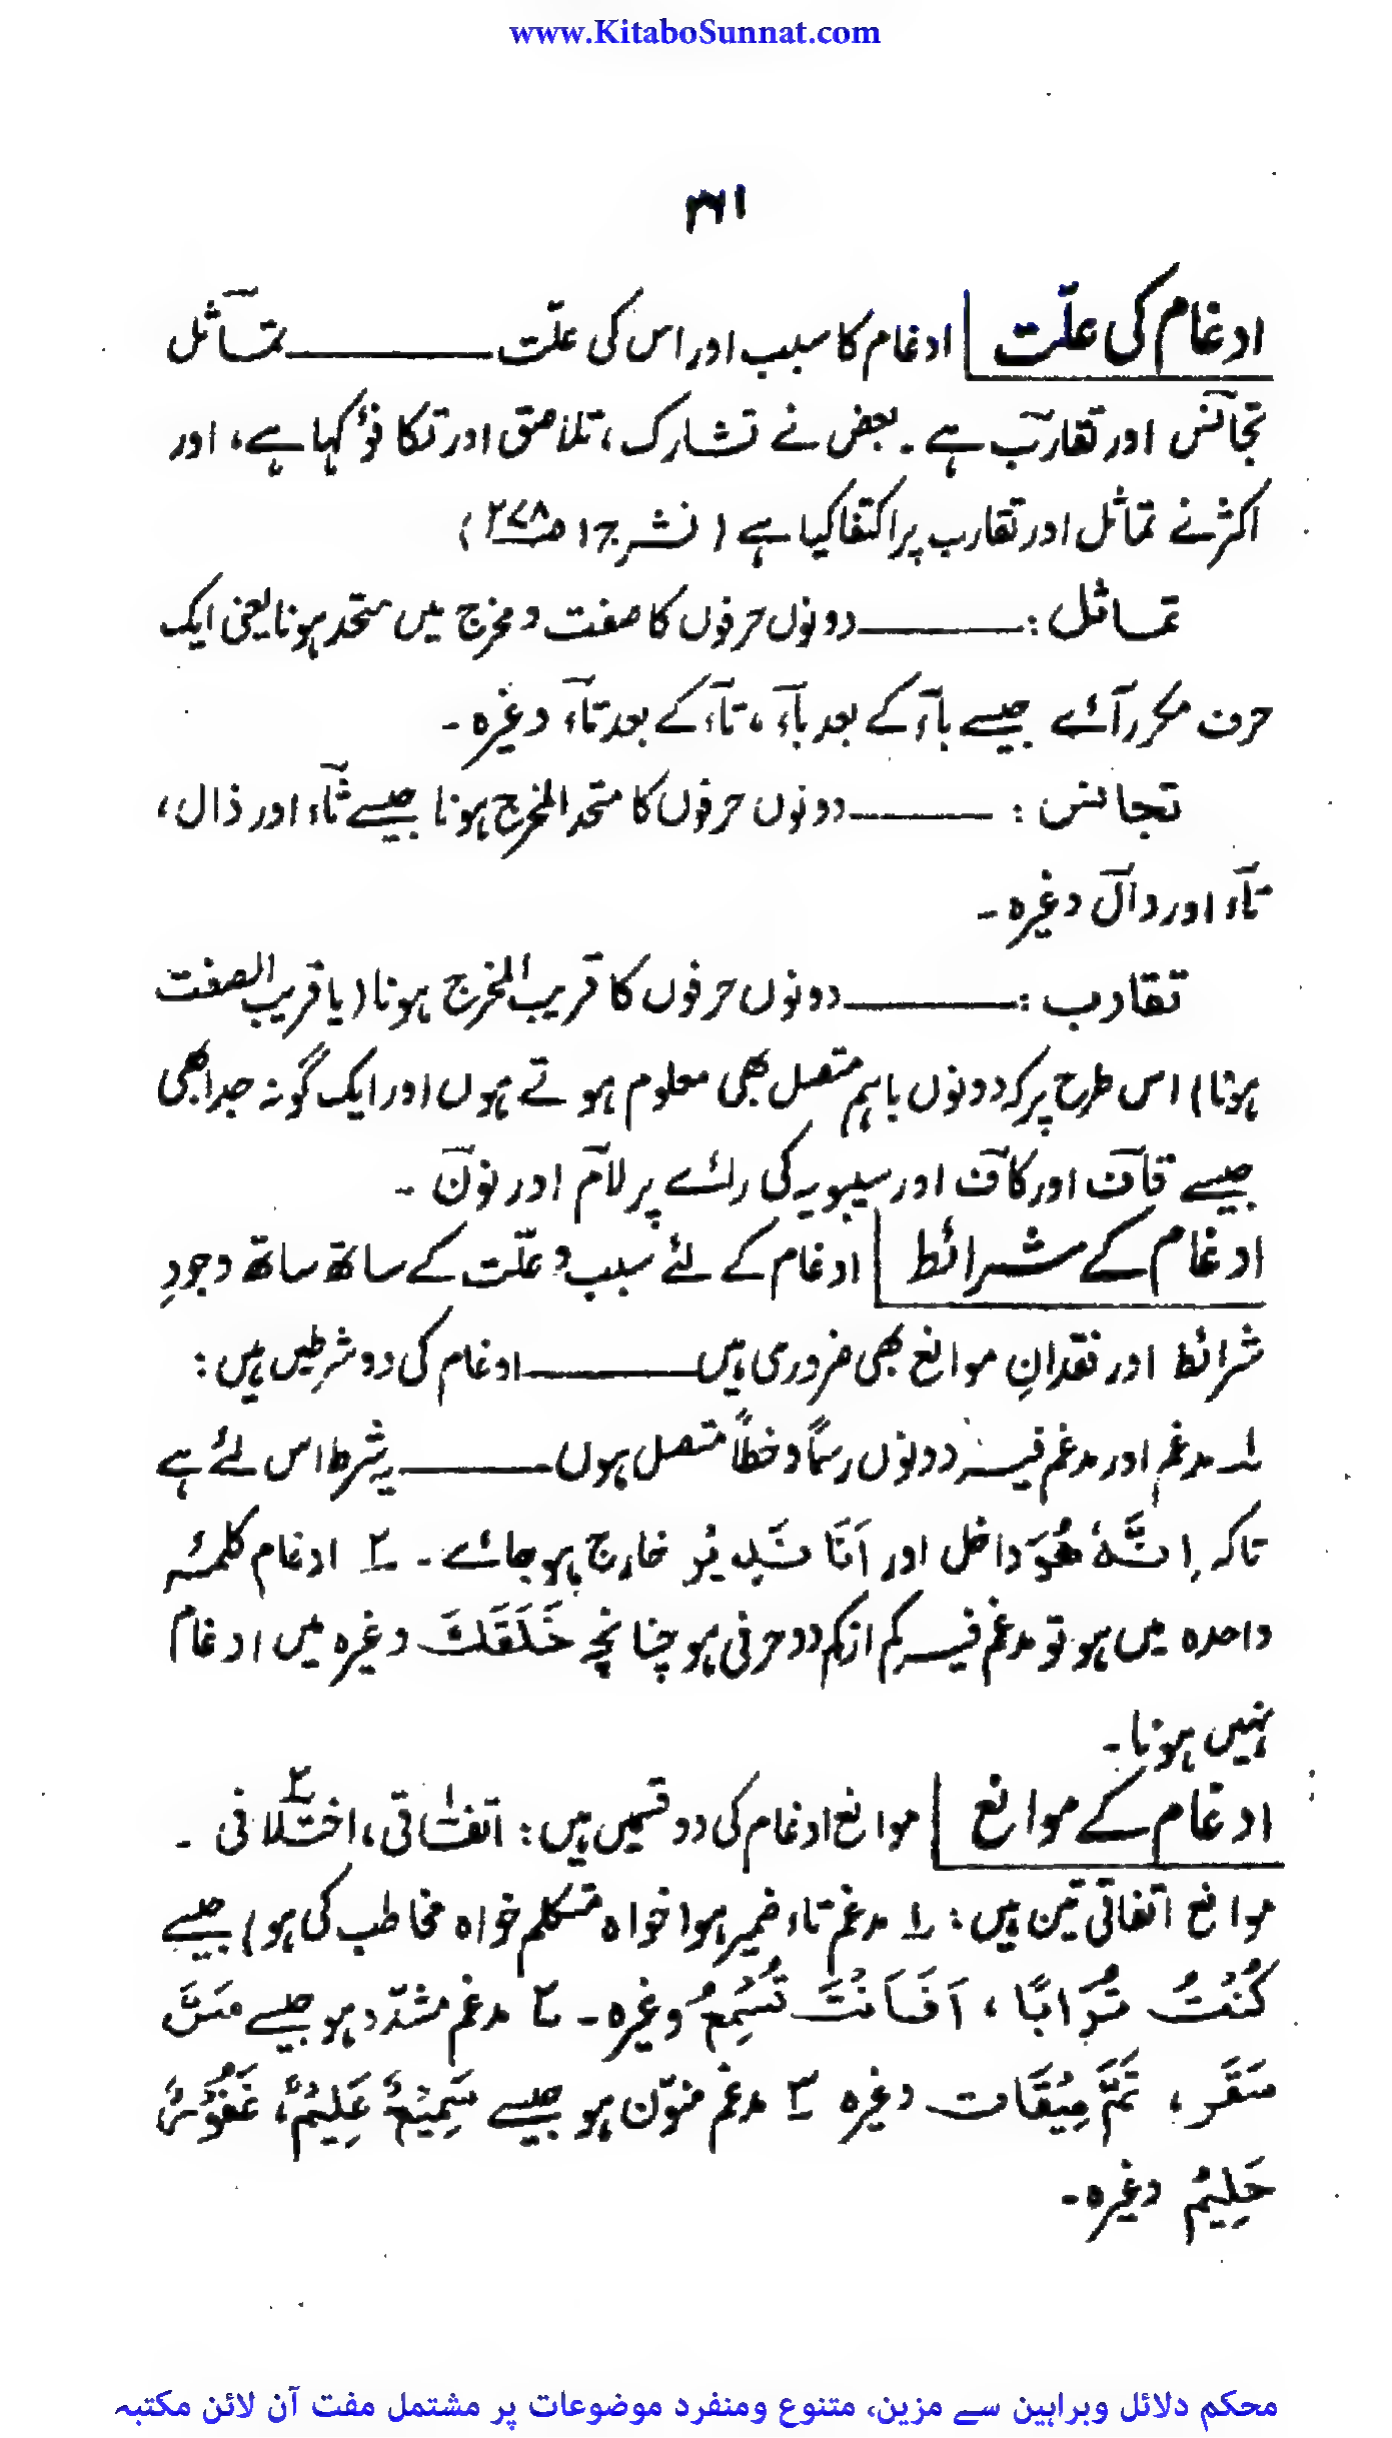 www.KitaboSunnat.com
۳۶۱
ادغام کی علّت ادغام کا سبب اور اس کی علّت ــــــ تمآثل
تجانس اور تقارب ہے۔ بعض نے تشارک، تلاصق اور تکافؤ کہا ہے، اور
اکثر نے تماثل اور تقارب پر اکتفا کیا ہے (نشر ج ۱ ص۲۷۸)
تماثل: ــــــ دونوں حرفوں کا صفت و مخرج میں متحد ہونا یعنی ایک
حرف مکرر آئے جیسے بآء کے بعد بآء، تآء کے بعد تآء وغیرہ۔
تجانس: ــــــ دونوں حرفوں کا متحد المخرج ہونا جیسے ثآء اور ذال،
تآء اور دآل وغیرہ۔
تقارب: ــــــ دونوں حرفوں کا قریب المخرج ہونا (یا قریب الصفت
ہونا) اس طرح پر کہ دونوں باہم متصل بھی معلوم ہوتے ہوں اور ایک گونہ جدا بھی
جیسے قآف اور کآف اور سیبویہ کی رائے پر لآم اور نوٓن۔
ادغام کے شرائط ادغام کے لئے سبب و علّت کے ساتھ ساتھ وجودِ
شرائط اور فقدانِ موانع بھی ضروری ہیں ــــــ ادغام کی دو شرطیں ہیں:
۱ مدغم اور مدغم فیہ دونوں رسمًا و خطًا متصل ہوں ــــــ یہ شرط اس لئے ہے
تاکہ اِنَّهٗ هُوَ داخل اور اَنَا نَذِیْرٌ خارج ہو جائے۔ ۲ ادغام کلمۂ
واحدہ میں ہو تو مدغم فیہ کم از کم دو حرفی ہو چنانچہ خَلَقَكَ وغیرہ میں ادغام
نہیں ہوتا۔
ادغام کے موانع موانع ادغام کی دو قسمیں ہیں: اتفاقی، اختلافی۔
موانع اتفاقی تین ہیں: ۱ مدغم تاء ضمیر ہو (خواہ متکلم خواہ مخاطب کی ہو) جیسے
كُنْتُ تُرَابًا، اَفَاَنْتَ تُسْمِعُ وغیرہ۔ ۲ مدغم مشدّد ہو جیسے مَسَّ
سَقَرَ، تَمَّ مِیْقَات وغیرہ ۳ مدغم منوّن ہو جیسے سَمِیْعٌ عَلِیْمٌ، غَفُوْرٌ
حَلِیْمٌ وغیرہ۔
محکم دلائل وبراہین سے مزین، متنوع ومنفرد موضوعات پر مشتمل مفت آن لائن مکتبہ